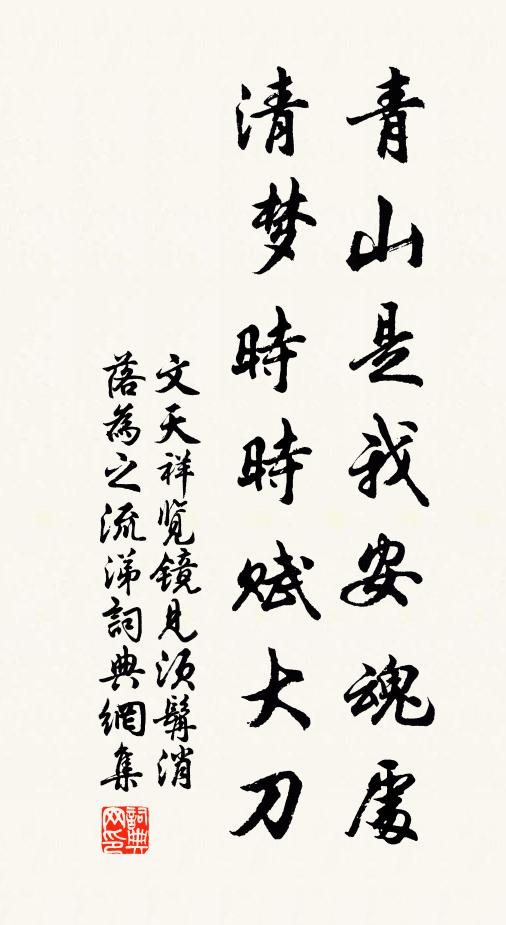 青山是我安魂處
清梦時時賦大刀
文天祥覧鏡見须髯消
落為之流涕詞典網集
詞典網印